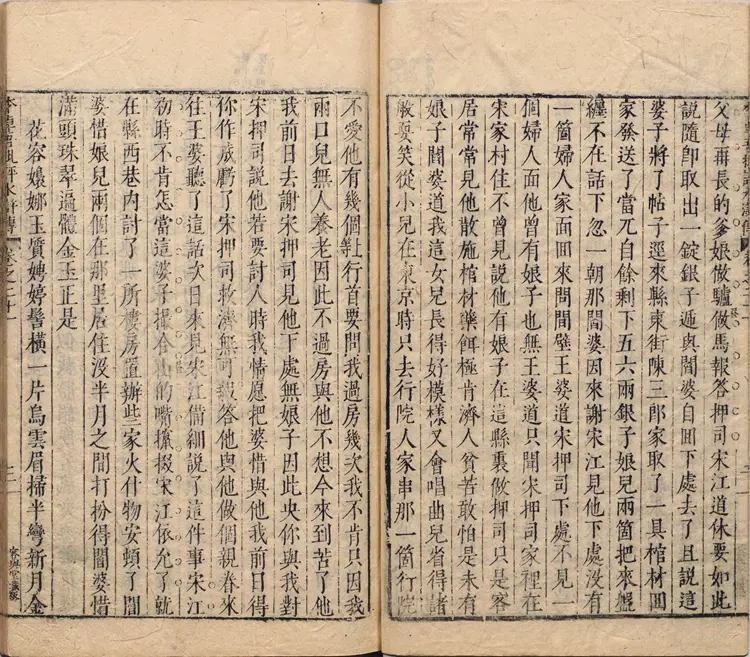 父母再長的爹娘做驢做馬報答押司宋江道休要如此
說隨卽取出一錠銀子遞與閻婆自回下處去了且說這
婆子將了帖子逕來縣東街陳三郎家取了一具棺材回
家發送了當兀自餘剩下五六兩銀子娘兒兩箇把來盤
纏不在話下忽一朝那閻婆因來謝宋江見他下處沒有
一箇婦人家面回來問間壁王婆道宋押司下處不見一
個婦人面他曾有娘子也無王婆道只聞宋押司家裡在
宋家村住不曾見說他有娘子在這縣裏做押司只是客
居常常見他散施棺材藥餌極肯濟人貧苦敢怕是未有
娘子閻婆道我這女兒長得好模樣又會唱曲兒省得諸
般耍笑從小兒在東京時只去行院人家串那一箇行院
不愛他有幾個上行首要問我過房幾次我不肯只因我
兩口兒無人養老因此不過房與他不想今來到苦了他
我前日去謝宋押司見他下處無娘子因此央你與我對
宋押司說他若要討人時我情愿把婆惜與他我前日得
你作成虧了宋押司救濟無可報答他與他做個親眷來
往王婆聽了這話次日來見宋江備細說了這件事宋江
初時不肯怎當這婆子撮合山的嘴攛掇宋江依允了就
在縣西巷內討了一所樓房置辦些家火什物安頓了閻
婆惜娘兒兩個在那里居住沒半月之間打扮得閻婆惜
滿頭珠翠遍體金玉正是
花容嬝娜玉質娉婷髻橫一片烏雲眉掃半彎新月金
水滸傳
卷之二十